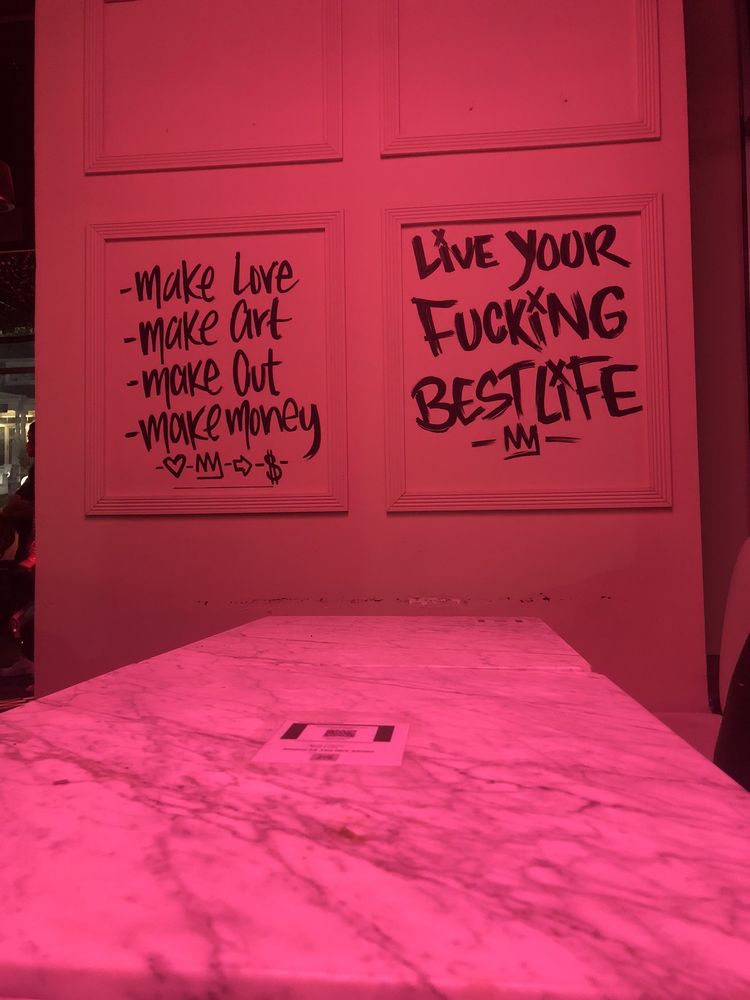 -make Love
-make art
-make Out
-make money
$
LiVE YOUR
FUCKiNG
BEST LiFE